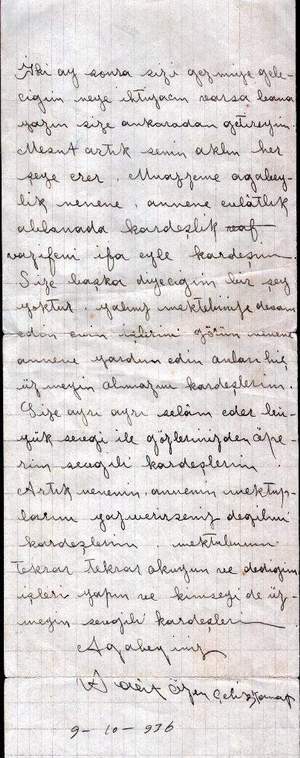 İki ay sonra sizi gezmiye gele-
ceğim neye ihtiyacın varsa bana
yazın size ankaradan getireyim.
Mesut artık senin aklın her
şeye erer. Muazzeme ağabey-
lik nenene, annene evlâtlık
ablanada kardeşlik
vazifeni ifa eyle kardeşim.
Size başka diyeceğim bir şey
yoktur. yalnız mektebinize devam
edin evin işlerini görün nenene
annene yardım edin onları hiç
üzmeyin olmazmı kardeşlerim.
Size ayrı ayrı selâm eder bü-
yük sevgi ile gözlerinizden öpe-
rim sevgili kardeşlerim.
Artık nenemin, annemin mektup-
larını yazıverirseniz değilmi
kardeşlerim. mektubumu
tekrar tekrar okuyun ve dediğim
işleri yapın ve kimseyi de üz-
meyin sevgili kardeşlerim
Ağabeyiniz
9-10-936